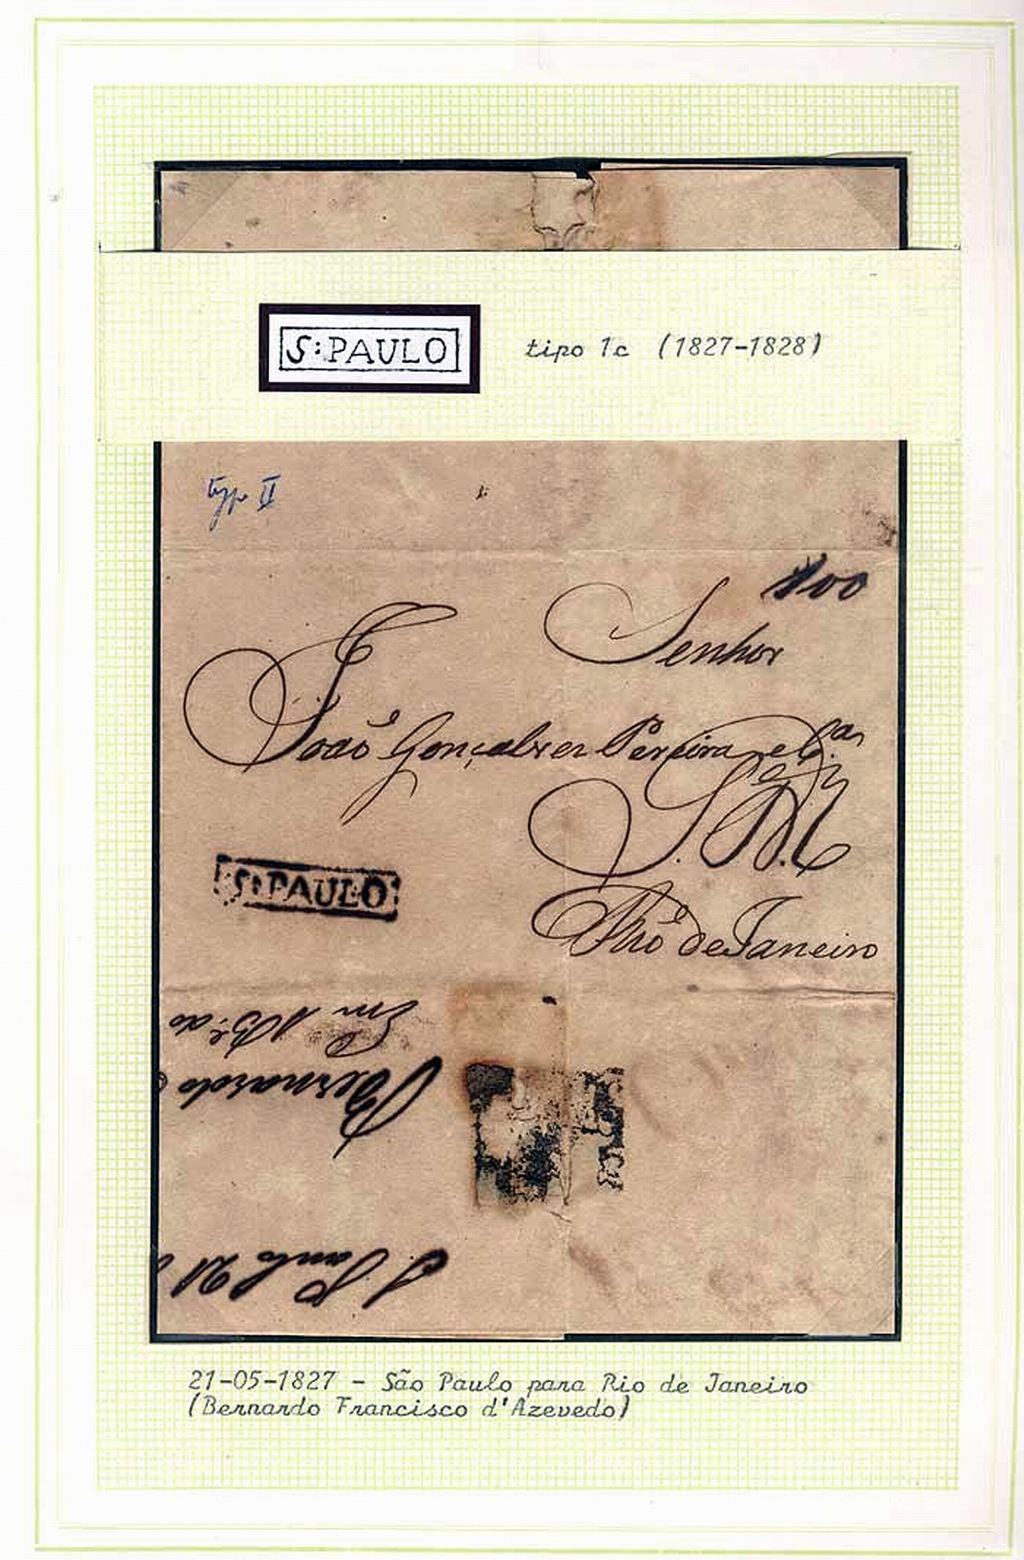 S:PAULO tipo 1c (1827-1828)
typ II
100
Senhor
João Gonçalves Pereira e C.ª
Rio de Janeiro
S:PAULO
Em
Bernardo
S. Paulo 21
21-05-1827 - São Paulo para Rio de Janeiro
(Bernardo Francisco d'Azevedo)